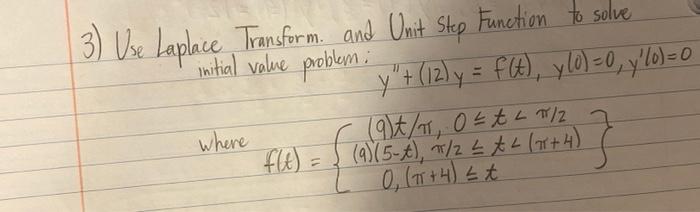 3) Use Laplace Transform. and Unit Step Function to solve
initial value problem:
y" + (12)y = f(t), y(0)=0, y'(0)=0
where
f(t) = { (9)t/π, 0 ≤ t < π/2
(9)(5-t), π/2 ≤ t < (π+4) }
0, (π+4) ≤ t